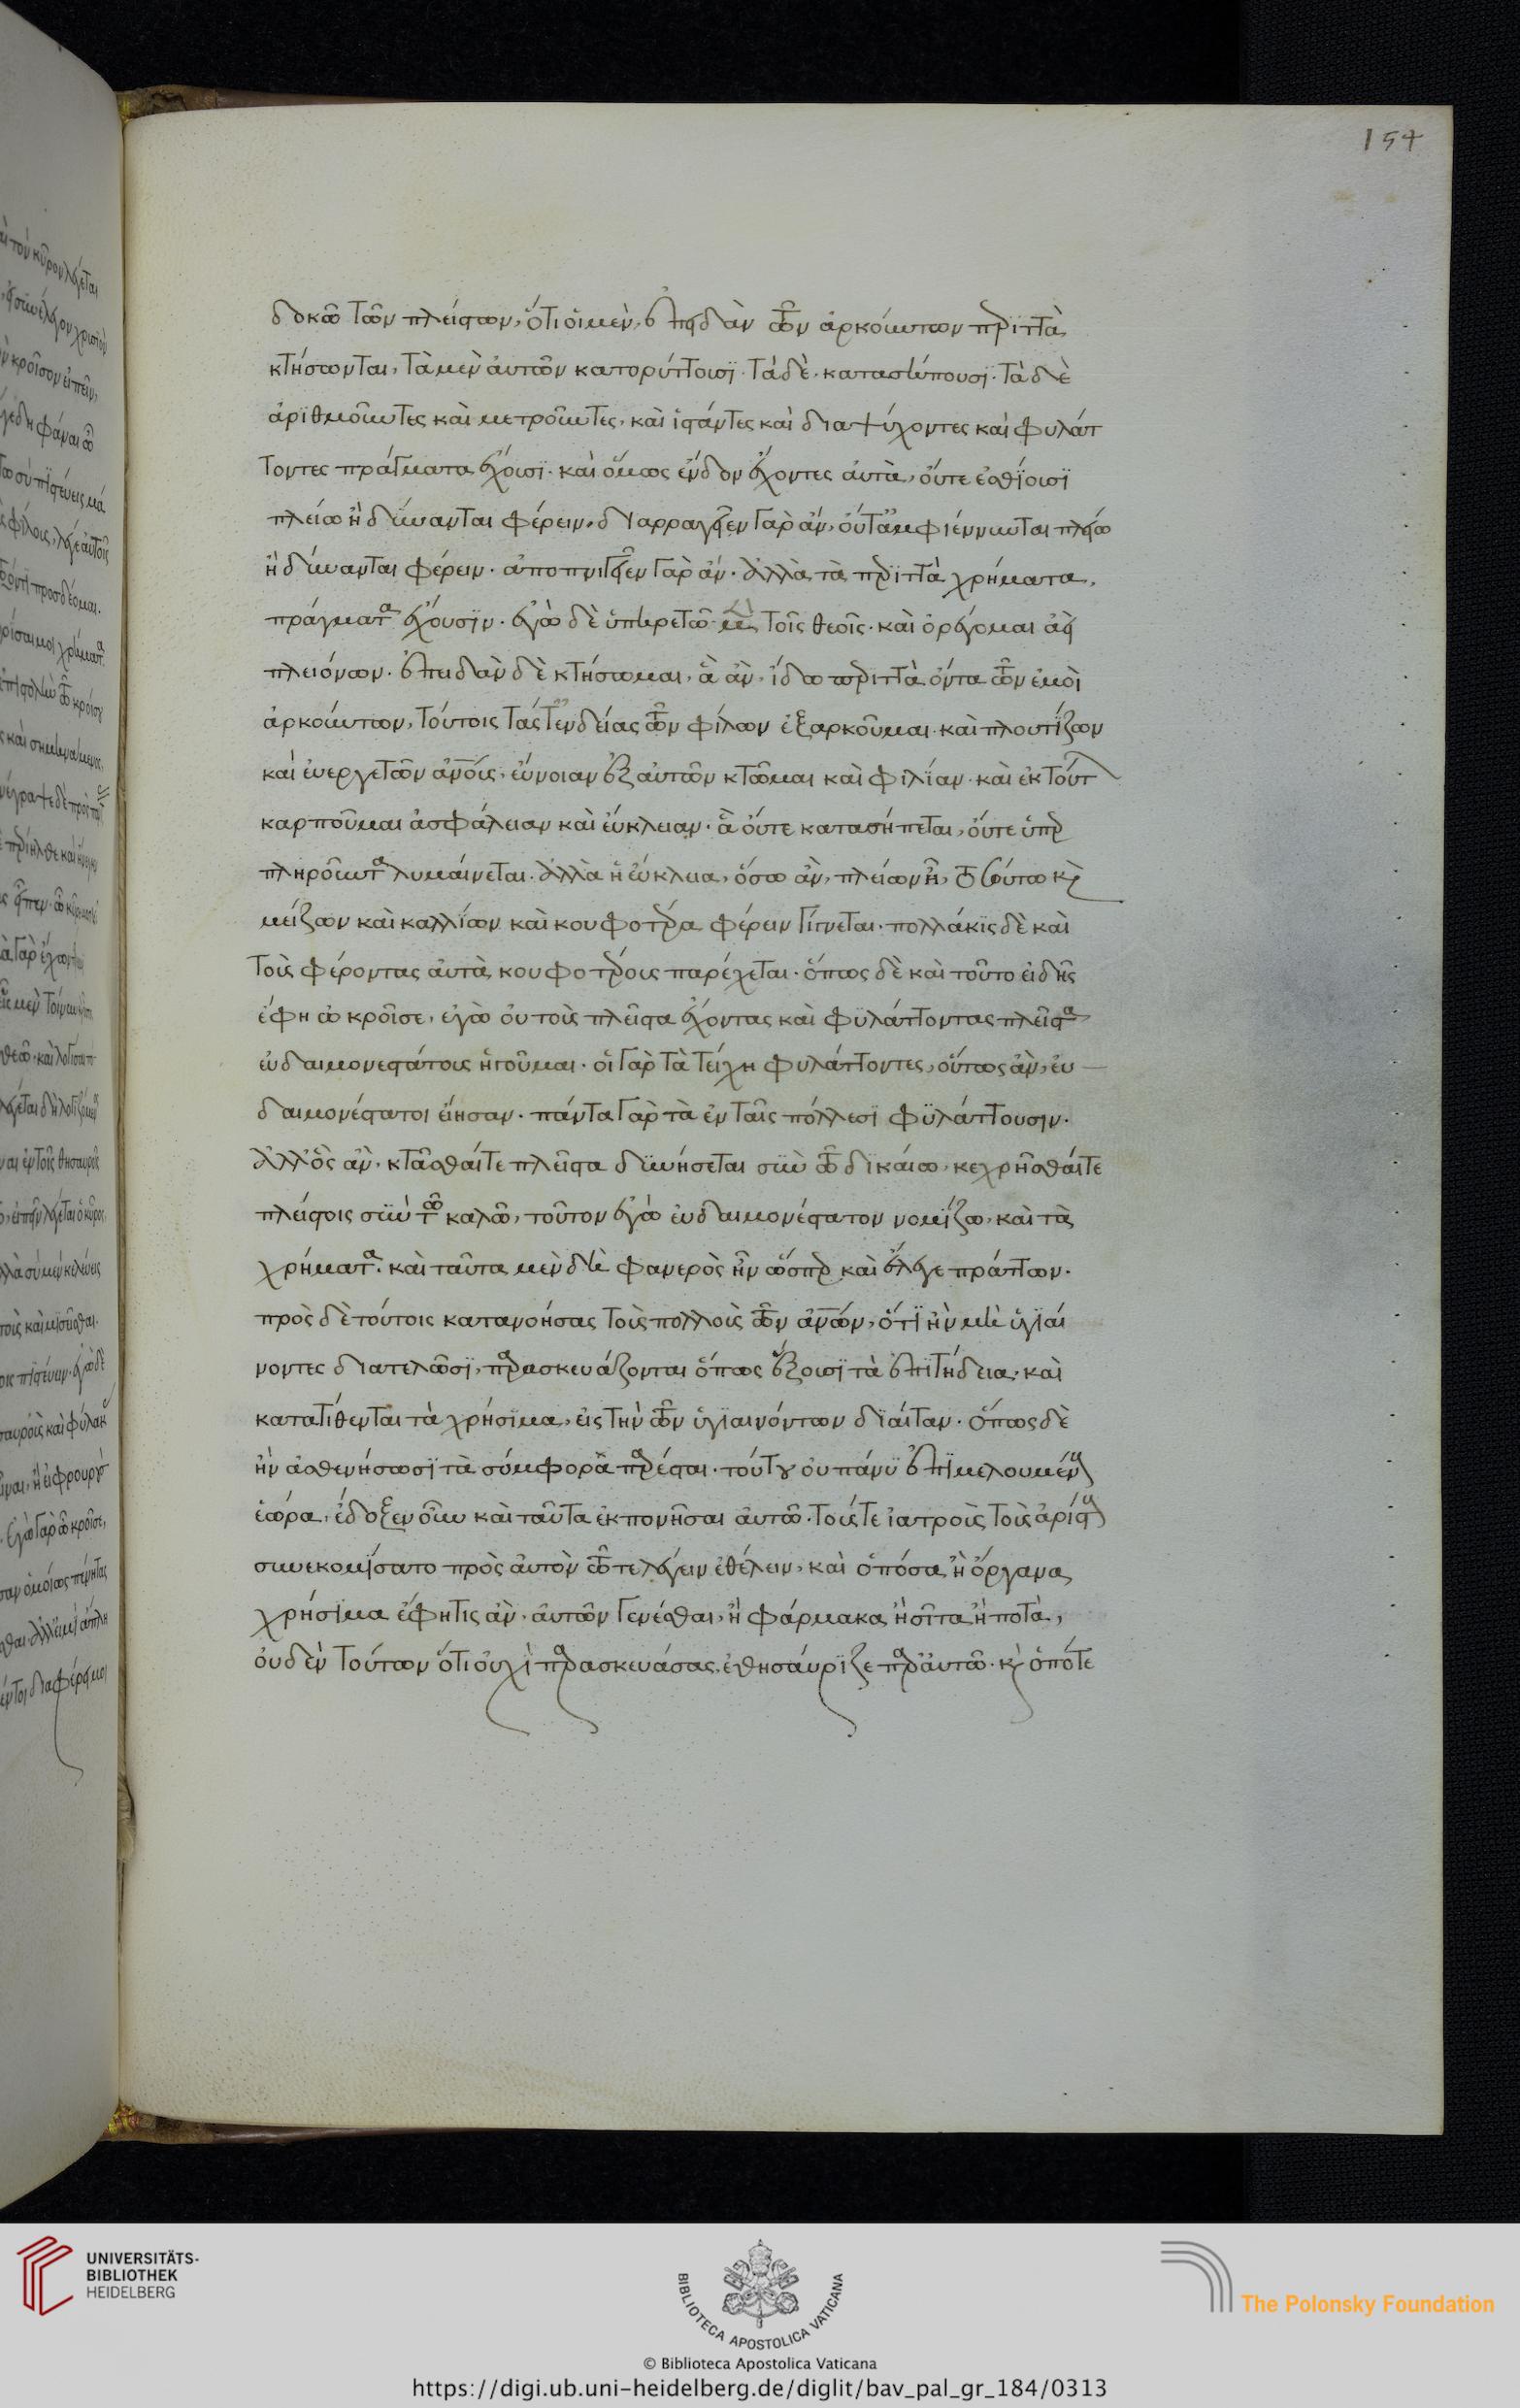 154
δοκῶ τῶν πλείστων, ὅτι οἱ μὲν, ἐπειδὰν τῶν ἀρκούντων περιττὰ
κτήσωνται, τὰ μὲν αὐτῶν κατορύττουσϊ· τὰ δὲ, κατασήπουσϊ· τὰ δὲ
ἀριθμοῦντες καὶ μετροῦντες, καὶ ἱστάντες καὶ διαψύχοντες καὶ φυλάτ
τοντες πράγματα ἔχουσϊ· καὶ ὅμως ἔνδον ἔχοντες αὐτὰ, οὔτε ἐσθίουσϊ
πλείω ἢ δύνανται φέρειν, διαρραγεῖεν γὰρ ἄν, οὔτ' ἀμφιέννυνται πλείω
ἢ δύνανται φέρειν· ἀποπνιγεῖεν γὰρ ἄν· ἀλλὰ τὰ περιττὰ χρήματα,
πράγματα ἔχουσϊν· ἐγὼ δὲ ὑπηρετῶ μὲν τοῖς θεοῖς· καὶ ὀρέγομαι ἀεὶ
πλειόνων· ἐπειδὰν δὲ κτήσωμαι, ἃ ἂν, ἴδω περιττὰ ὄντα τῶν ἐμοὶ
ἀρκούντων, τούτοις τάς τ' ἐνδείας τῶν φίλων ἐξαρκοῦμαι· καὶ πλουτίζων
καὶ εὐεργετῶν ἀνους, εὔνοιαν ἐξ αὐτῶν κτῶμαι καὶ φιλίαν· καὶ ἐκ τούτ
καρποῦμαι ἀσφάλειαν καὶ εὔκλειαν· ἃ οὔτε κατασήπεται, οὔτε ὑπερ
πληροῦντα λυμαίνεται· ἀλλὰ ἡ εὔκλεια, ὅσω ἂν, πλείων ἦ, τοσούτω καὶ
μείζων καὶ καλλίων καὶ κουφοτέρα φέρειν γίγνεται· πολλάκις δὲ καὶ
τοὺς φέροντας αὐτὰ κουφοτέρους παρέχεται· ὅπως δὲ καὶ τοῦτο εἰδῆς
ἔφη ὦ κροῖσε, ἐγὼ οὐ τοὺς πλεῖστα ἔχοντας καὶ φϋλάττοντας πλεῖστα
εὐδαιμονεστάτους ἡγοῦμαι· οἱ γὰρ τὰ τείχη φυλάττοντες, οὕτως ἂν, εὐ
δαιμονέστατοι εἴησαν· πάντα γὰρ τὰ ἐν ταῖς πόλλεσϊ φϋλάττουσιν·
ἀλλ' ὃς ἂν, κτᾶσθαί τε πλεῖστα δϋνήσεται σὺν τῶ δικαίω, κεχρῆσθαί τε
πλείστοις σὺν τῶ καλῶ, τοῦτον ἐγὼ εὐδαιμονέστατον νομίζω, καὶ τὰ
χρήματα· καὶ ταῦτα μὲν δὴ φανερὸς ἦν ὥσπερ καὶ ἔλεγε πράττων·
πρὸς δὲ τούτοις κατανοήσας τοὺς πολλοὺς τῶν ἀνων, ὅτϊ ἢν μὲν ὑγιαί
νοντες διατελῶσϊ, παρασκευάζονται ὅπως ἕξουσϊ τὰ ἐπϊτήδεια· καὶ
κατατίθενται τὰ χρήσϊμα, εἰς τὴν τῶν ὑγιαινόντων δίαιταν· ὅπως δὲ
ἢν ἀσθενήσωσϊ τὰ σύμφορα παρέσται· τούτου οὐ πάνϋ ἐπϊμελουμένους
ἑώρα, ἔδοξεν οὖν καὶ ταῦτα ἐκπονῆσαι αὐτῶ· τούς τε ἰατροὺς τοὺς ἀρίστους
συνεκομίσατο πρὸς αὐτὸν τῶ τελέγειν ἐθέλειν, καὶ ὁπόσα ἢ ὄργανα
χρήσϊμα ἔφη τις ἂν, αὐτῶν γενέσθαι, ἢ φάρμακα ἢ σῖτα ἢ ποτὰ,
οὐδὲν τούτων ὅτι οὐχὶ παρασκευάσας, ἐθησαύριζε παρ' αὐτῶ· καὶ ὁπότε
UNIVERSITÄTS-
BIBLIOTHEK
HEIDELBERG
BIBLIOTECA APOSTOLICA VATICANA
The Polonsky Foundation
© Biblioteca Apostolica Vaticana
https://digi.ub.uni-heidelberg.de/diglit/bav_pal_gr_184/0313